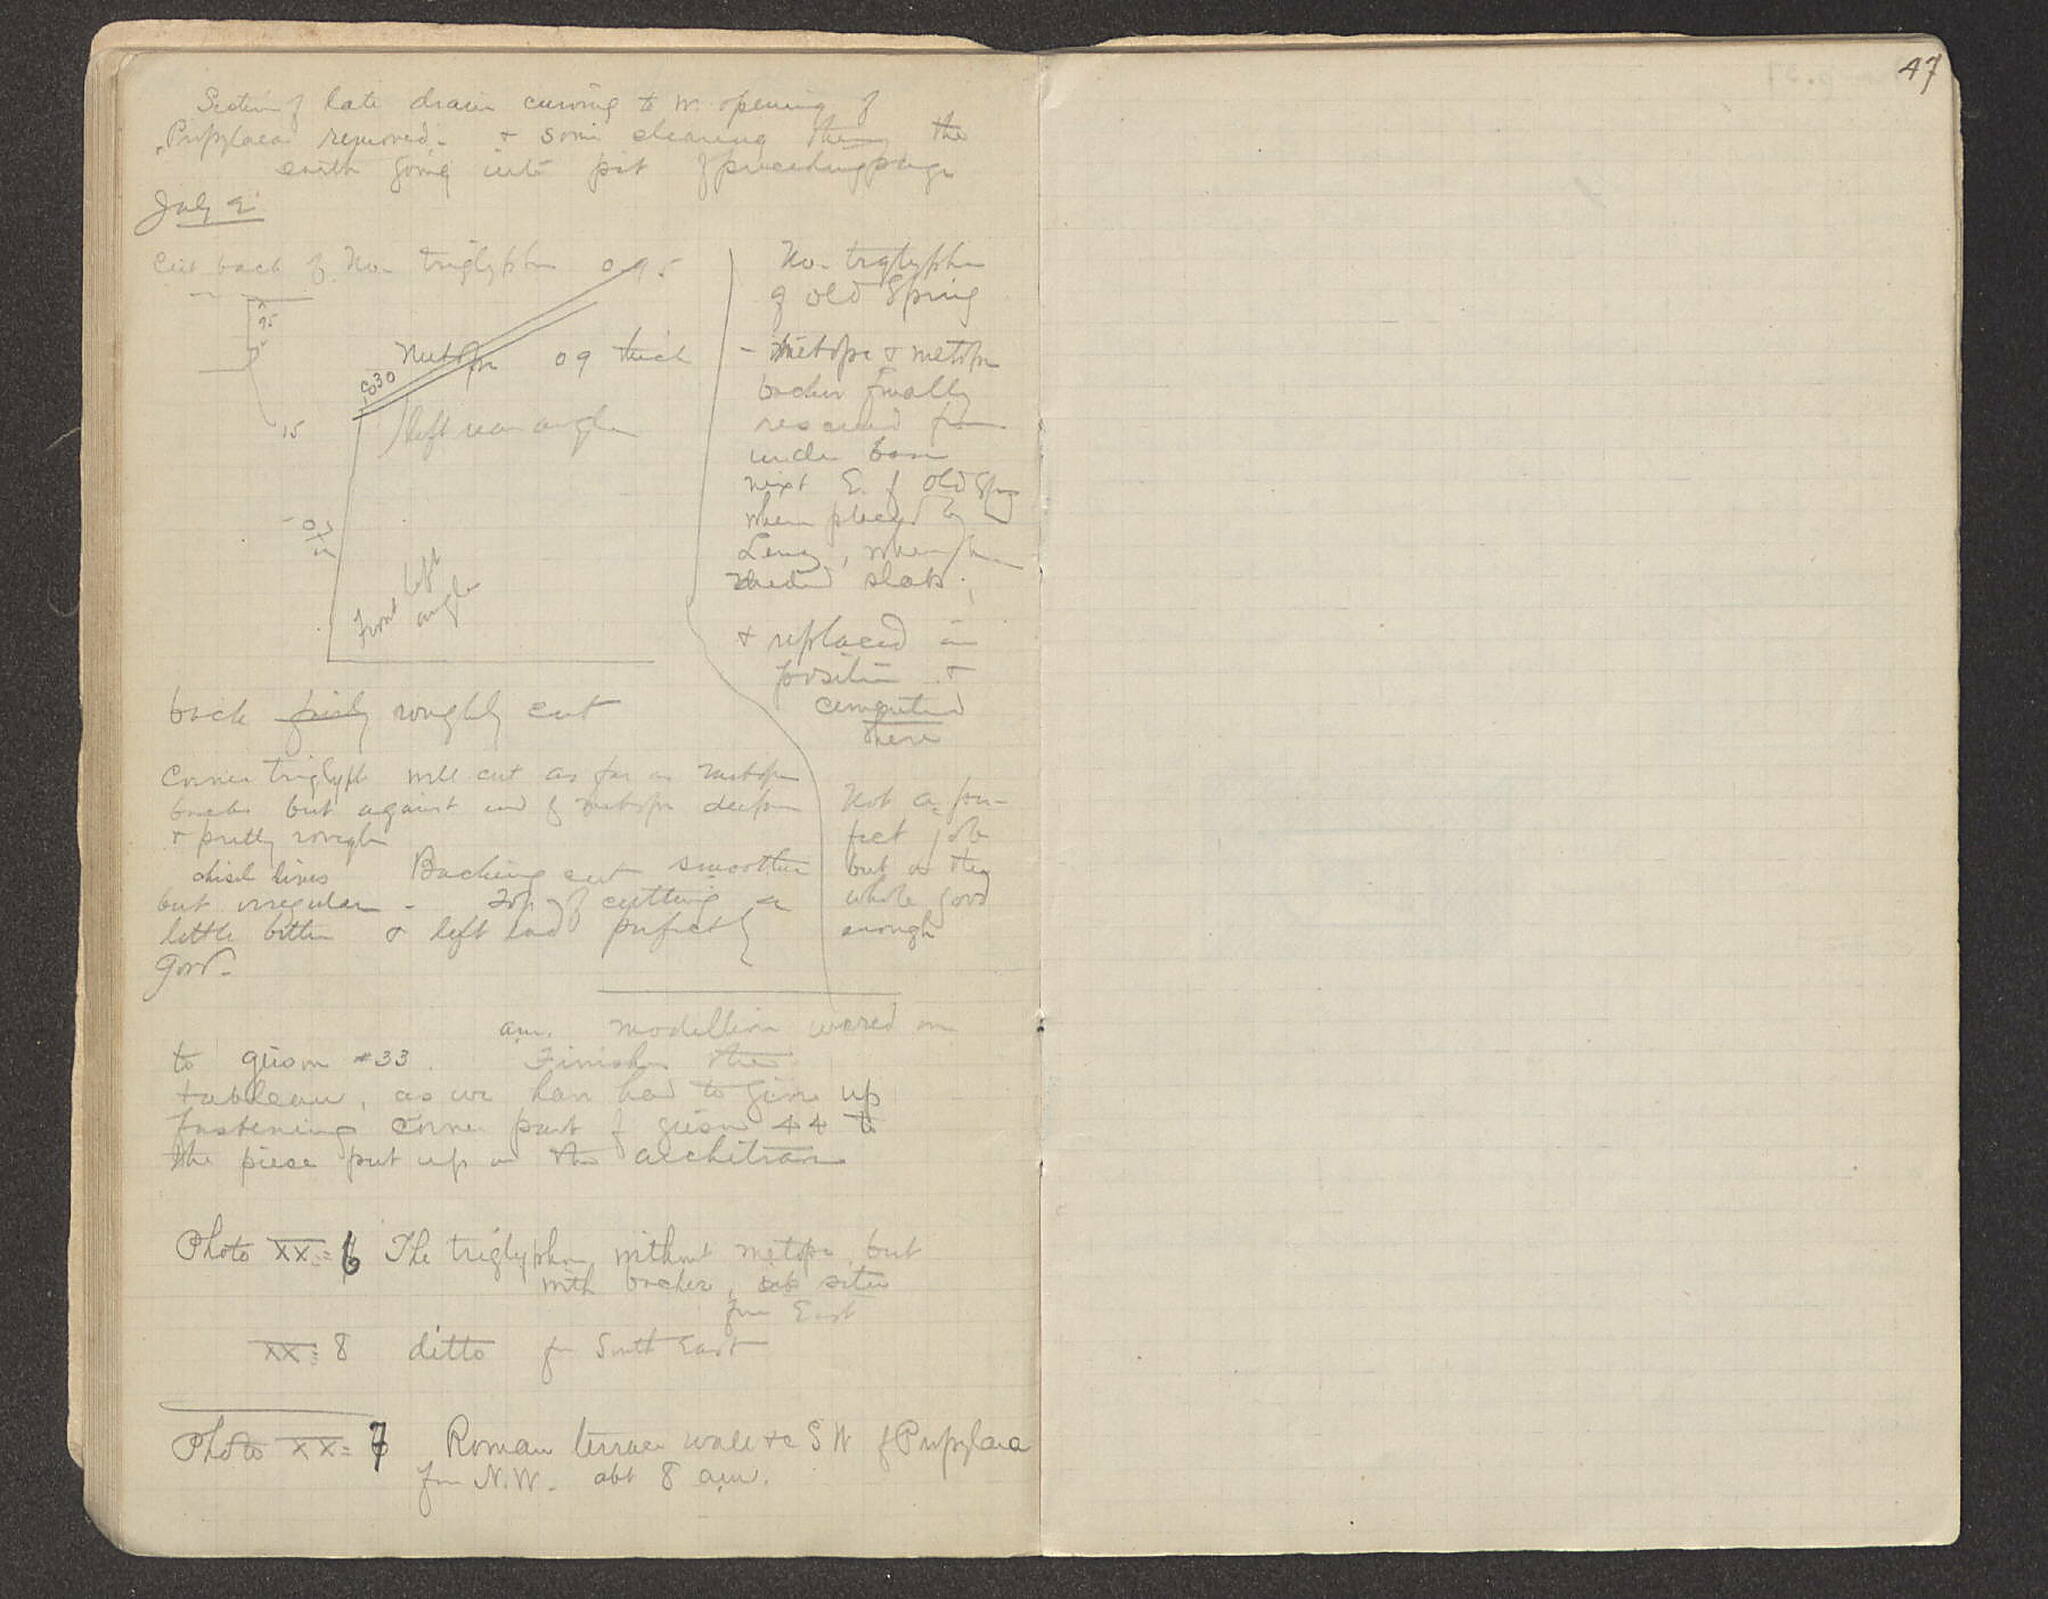 Section of late drain curving to W. opening of
Propylaea removed - & some clearing there the
earth going into pit of preceding page
July 9
Cut back of No. triglyphon 0.95
95
15
Metope 09 thick
030
left rear angle
Front left
angle
No. triglyphon
of Old Spring
- metope & metope
backer finally
rescued from
under base
next E. of Old Spring
where placed by
when he
needed slabs,
& replaced in
position &
cemented
there
back roughly cut
Corner triglyph well cut as far as metope
backer but against end of metope deeper
& pretty rough
chisel lines Backing cut smoother
but irregular - Top of cutting a
little better & left end perfectly
good -
Not a per-
fect job
but on the
whole good
enough
a.m. modillion wired on
to geison #33. Finishes the
tableau, as we have had to give up
fastening corner part of geison 44 to
the piece put up on the architrave
Photo XX = 6 The triglyphon without metope, but
with backer, situ
from East
XX = 8 ditto from South East
Photo XX = 7 Roman terrace wall &c SW of Propylaea
from N.W. abt 8 a.m.
47